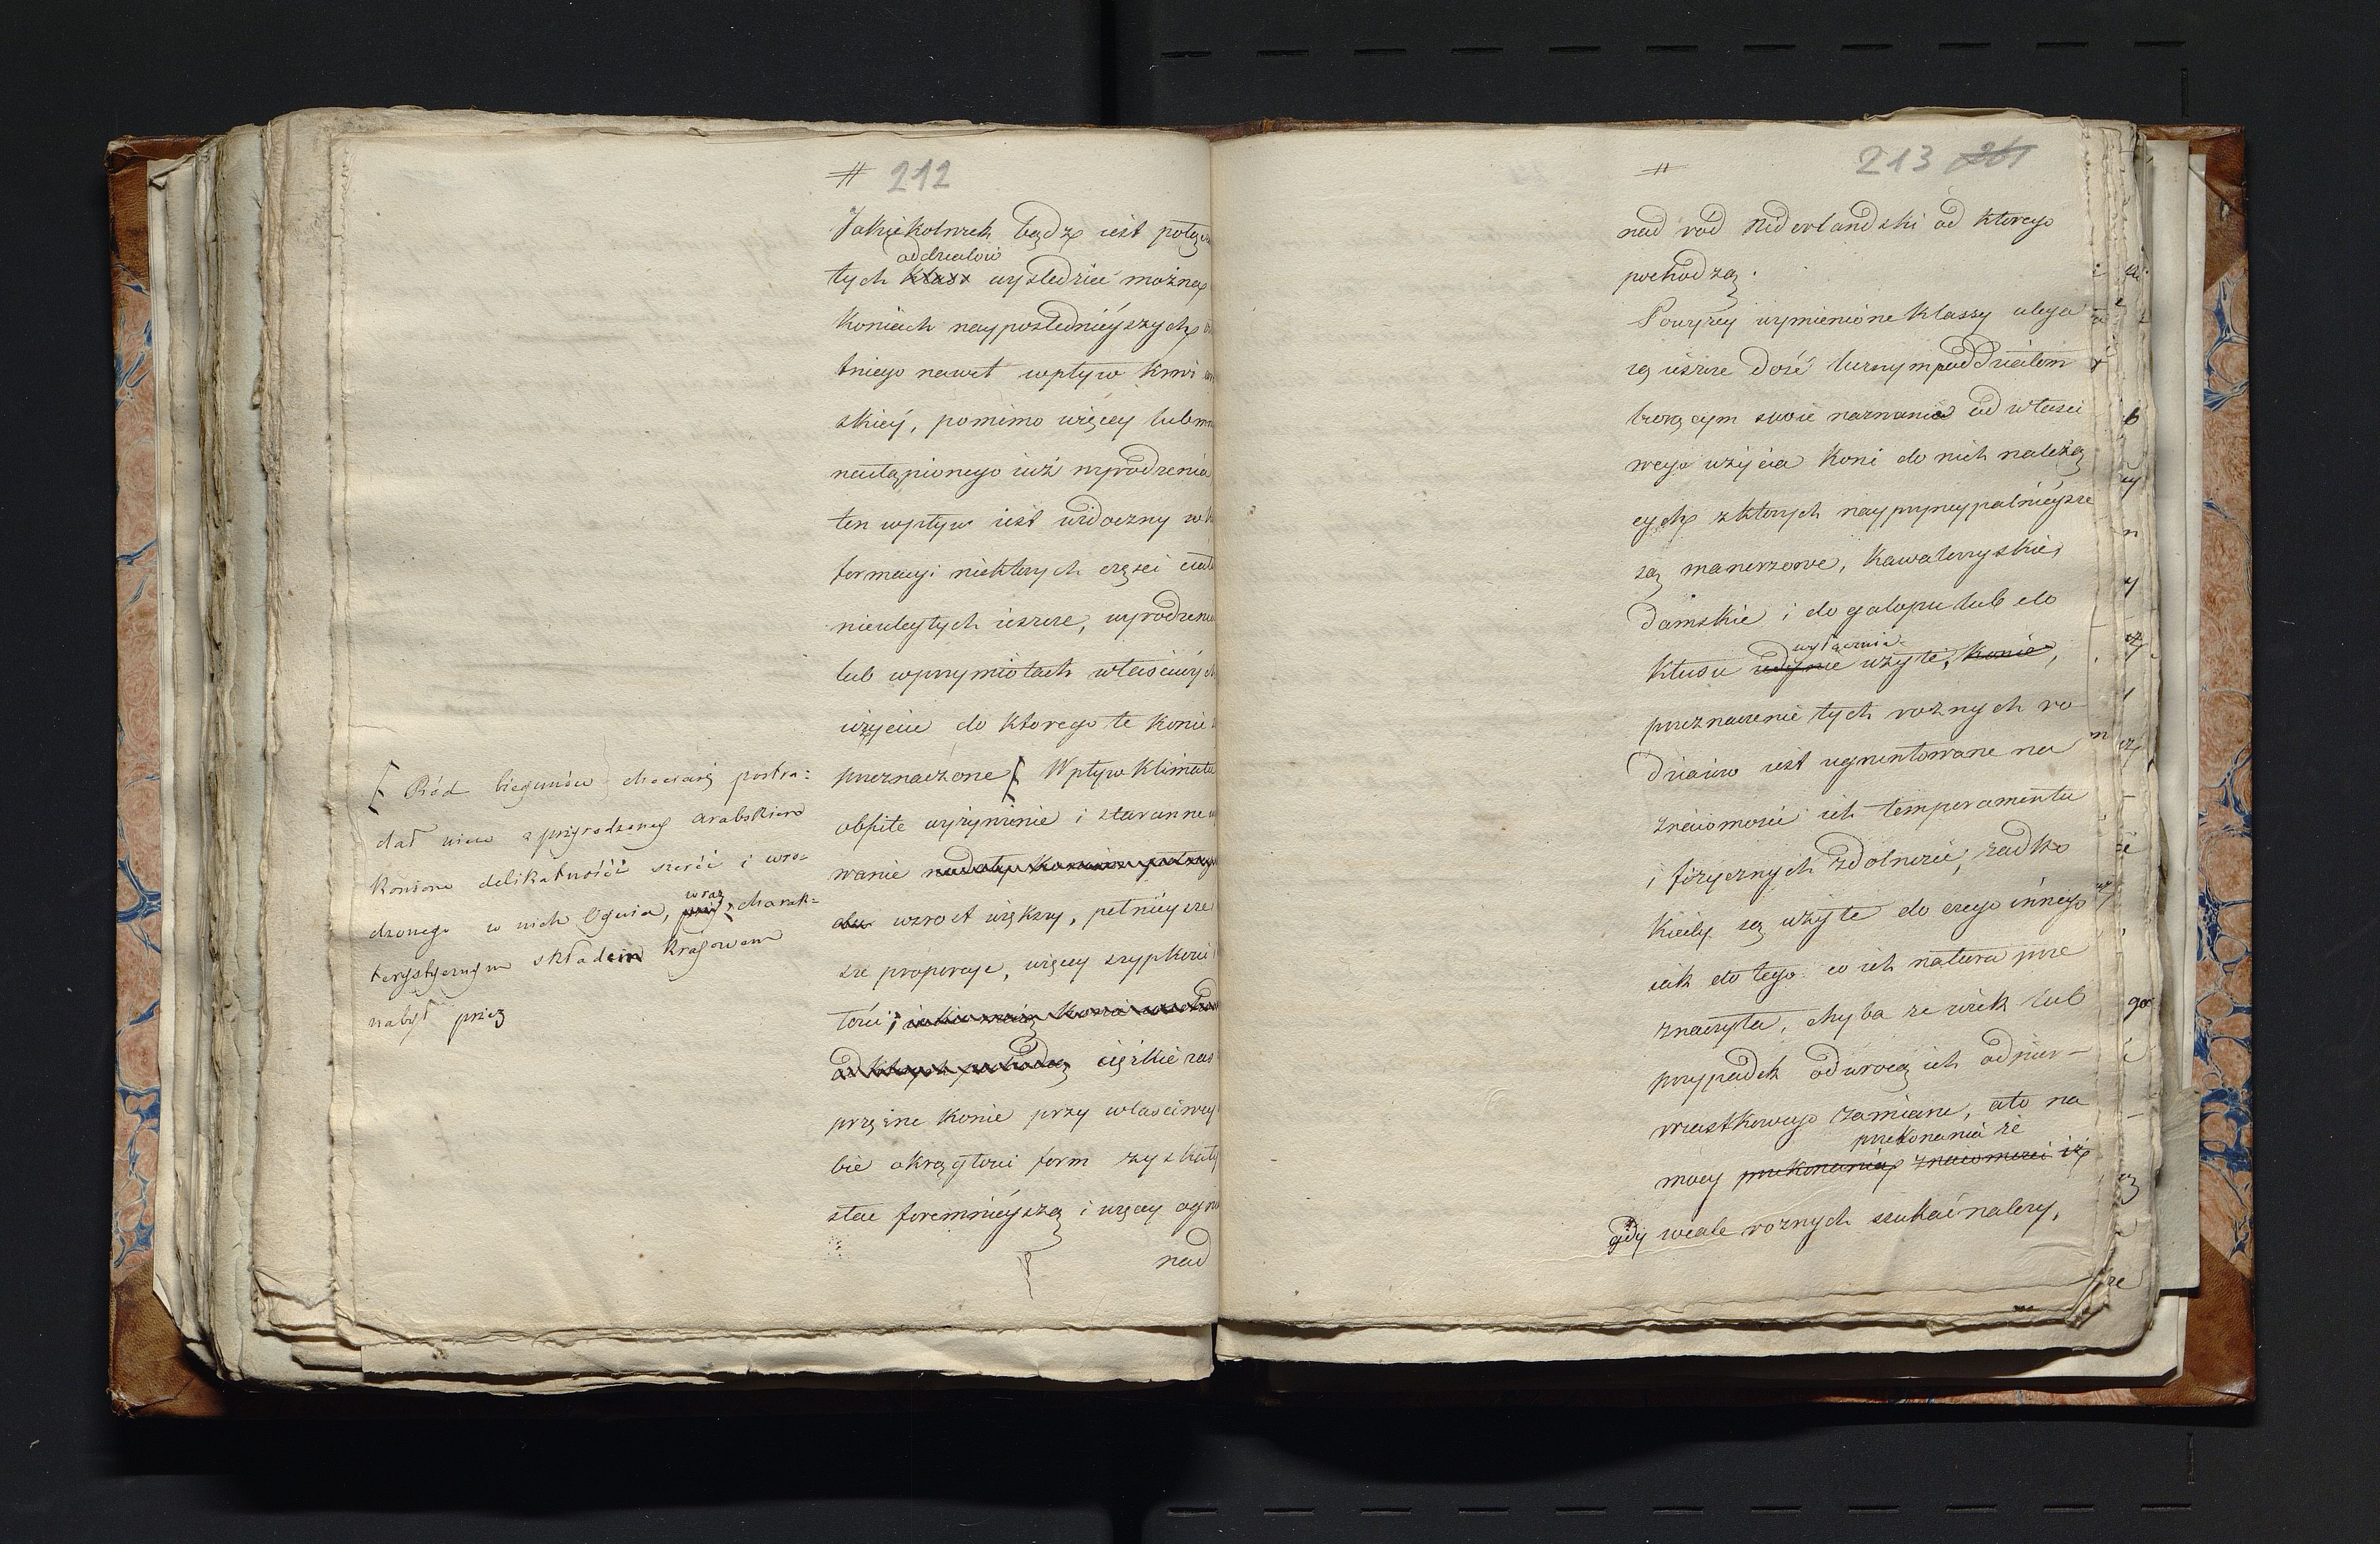 # 212
Jakiekolwiek bądz iest połącz
oddziałow
tych klass wysledzić można
koniach nayposlednieyszych
tniego nawet wpływ krwi
skiey, pomimo więcey lub
nastąpionego iuż wyrodzenia
ten wpływ iest widoczny w
formacyi niektorych części ciał
nieuległych ieszcze, wyrodzeniu
lub wprzymiotach własciwych
użyciu do ktorego te konie
przeznaczone [ Wpływ klimatu
obfite wyżywienie i staranne
wanie
wzrost większy, pełnieysze
sze proporcye, więcey szypkosci
tosci,
od ktorych pochodzą ciężkie zas
przęzne konie przy własciwey
bie okrągłosci form zyskały
stac foremnieyszą i więcey ogni
nad
[ Ród biegunów chociaż postra:
dał wiele z przyrodzoney arabskiem
koniom delikatności sierści i wro-
dzonego w nich Ognia, wraz z charak:
terystycznym składem krajowem
nabył przez
213 261
nad rod Niderlandski od ktorego
pochodzą.
Powyżey wymienione klassy ulega
ią ieszcze dość licznym pod Działom
biorącym swoie nazwania od własci
wego użycia koni do nich należą
cych z ktorych naypryncypalnieysze
są maneżowe, kawaleryskie,
Damskie i do galopu lub do
wyłącznie
kłusu iedynie użyte, konie,
przeznaczenie tych roznych ro-
Dzaiow iest ugruntowane na
znaiomosci ich temperamentu
i fizycznych zdolnosci, rzadko
kiedy są użyte do czego innego
iak do tego co ich natura prze
znaczyła, chyba ze wiek lub
przypadek odwrocą ich od pier-
wiastkowego zamiaru, ato na
przekonania że
mocy przekonania znaiomosci iż
gdy wcale roznych szukać nalezy,